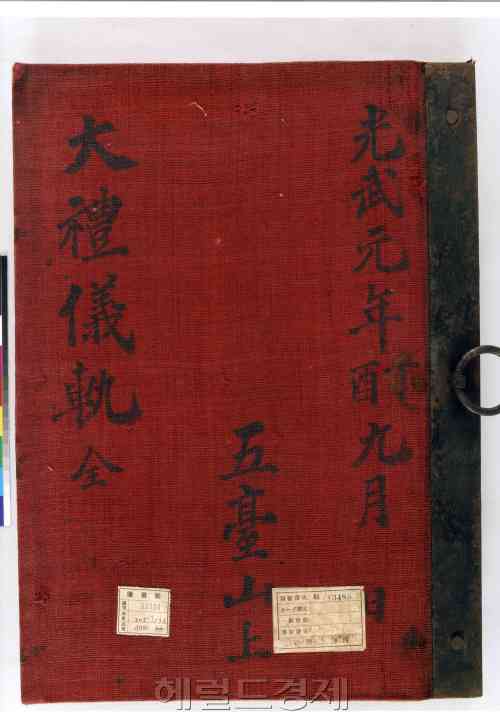 光武元年丁酉九月 日
五臺山上
大禮儀軌 全
헤럴드경제